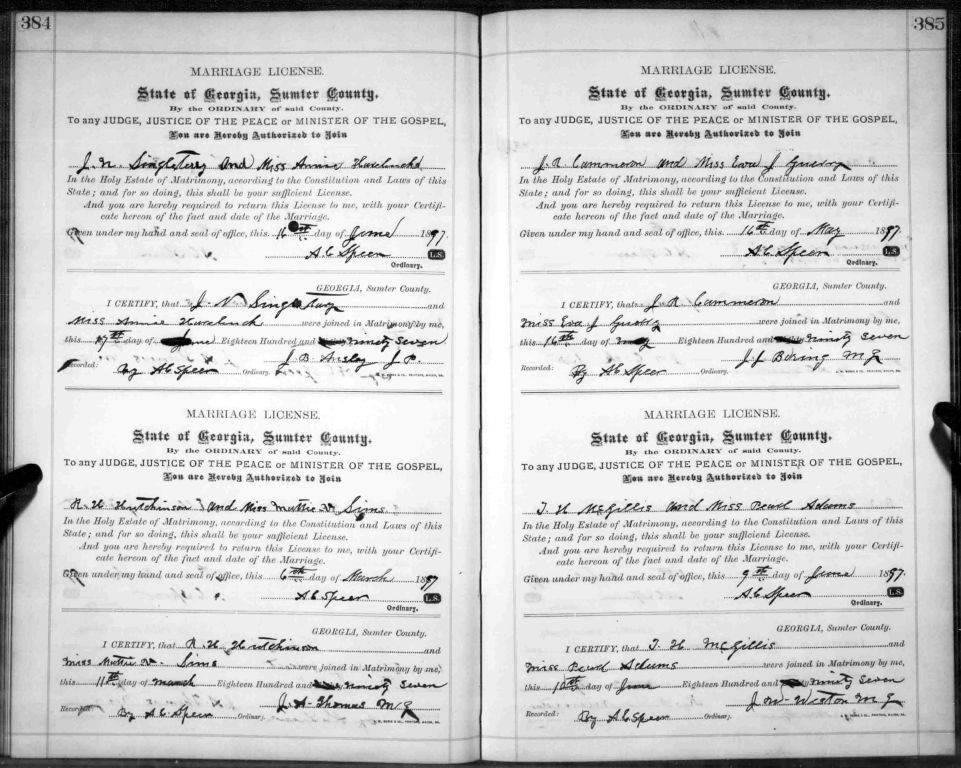 384
MARRIAGE LICENSE.
State of Georgia, Sumter County.
By the ORDINARY of said County.
To any JUDGE, JUSTICE OF THE PEACE or MINISTER OF THE GOSPEL,
You are Hereby Authorized to Join
J. N. Singletery and Miss Annie
In the Holy Estate of Matrimony, according to the Constitution and Laws of this
State; and for so doing, this shall be your sufficient License.
And you are hereby required to return this License to me, with your Certifi-
cate hereon of the fact and date of the Marriage.
Given under my hand and seal of office, this 16 day of June 1897.
A C Speer L.S.
Ordinary.
GEORGIA, Sumter County.
I CERTIFY, that J N Singletary and
Miss Annie were joined in Matrimony by me,
this 17th day of June Eighteen Hundred and Ninety Seven
J. B. Ansley J.P.
Recorded: By A C Speer Ordinary.
MARRIAGE LICENSE.
State of Georgia, Sumter County.
By the ORDINARY of said County.
To any JUDGE, JUSTICE OF THE PEACE or MINISTER OF THE GOSPEL,
You are Hereby Authorized to Join
R. H Hutchinson and Miss Mattie Sims
In the Holy Estate of Matrimony, according to the Constitution and Laws of this
State; and for so doing, this shall be your sufficient License.
And you are hereby required to return this License to me, with your Certifi-
cate hereon of the fact and date of the Marriage.
Given under my hand and seal of office, this 6th day of March 1897
A C Speer L.S.
Ordinary.
GEORGIA, Sumter County.
I CERTIFY, that R H Hutchinson and
Miss Mattie Sims were joined in Matrimony by me,
this 11th day of March Eighteen Hundred and Ninety Seven
J. A. Thomas M G
Recorded: By A C Speer Ordinary.
385
MARRIAGE LICENSE.
State of Georgia, Sumter County.
By the ORDINARY of said County.
To any JUDGE, JUSTICE OF THE PEACE or MINISTER OF THE GOSPEL,
You are Hereby Authorized to Join
J. R. Cammeron and Miss Eva J Guerry
In the Holy Estate of Matrimony, according to the Constitution and Laws of this
State; and for so doing, this shall be your sufficient License.
And you are hereby required to return this License to me, with your Certifi-
cate hereon of the fact and date of the Marriage.
Given under my hand and seal of office, this 16th day of May 1897.
A C Speer L.S.
Ordinary.
GEORGIA, Sumter County.
I CERTIFY, that J R Cammeron and
Miss Eva J Guerry were joined in Matrimony by me,
this 16th day of May Eighteen Hundred and Ninety Seven
J. J. M G
Recorded: By A C Speer Ordinary.
MARRIAGE LICENSE.
State of Georgia, Sumter County.
By the ORDINARY of said County.
To any JUDGE, JUSTICE OF THE PEACE or MINISTER OF THE GOSPEL,
You are Hereby Authorized to Join
T H McGillis and Miss Pearl Adams
In the Holy Estate of Matrimony, according to the Constitution and Laws of this
State; and for so doing, this shall be your sufficient License.
And you are hereby required to return this License to me, with your Certifi-
cate hereon of the fact and date of the Marriage.
Given under my hand and seal of office, this 9th day of June 1897.
A C Speer L.S.
Ordinary.
GEORGIA, Sumter County.
I CERTIFY, that T H McGillis and
Miss Pearl Adams were joined in Matrimony by me,
this 10th day of June Eighteen Hundred and Ninety Seven
J W Weston M G
Recorded: By A C Speer Ordinary.